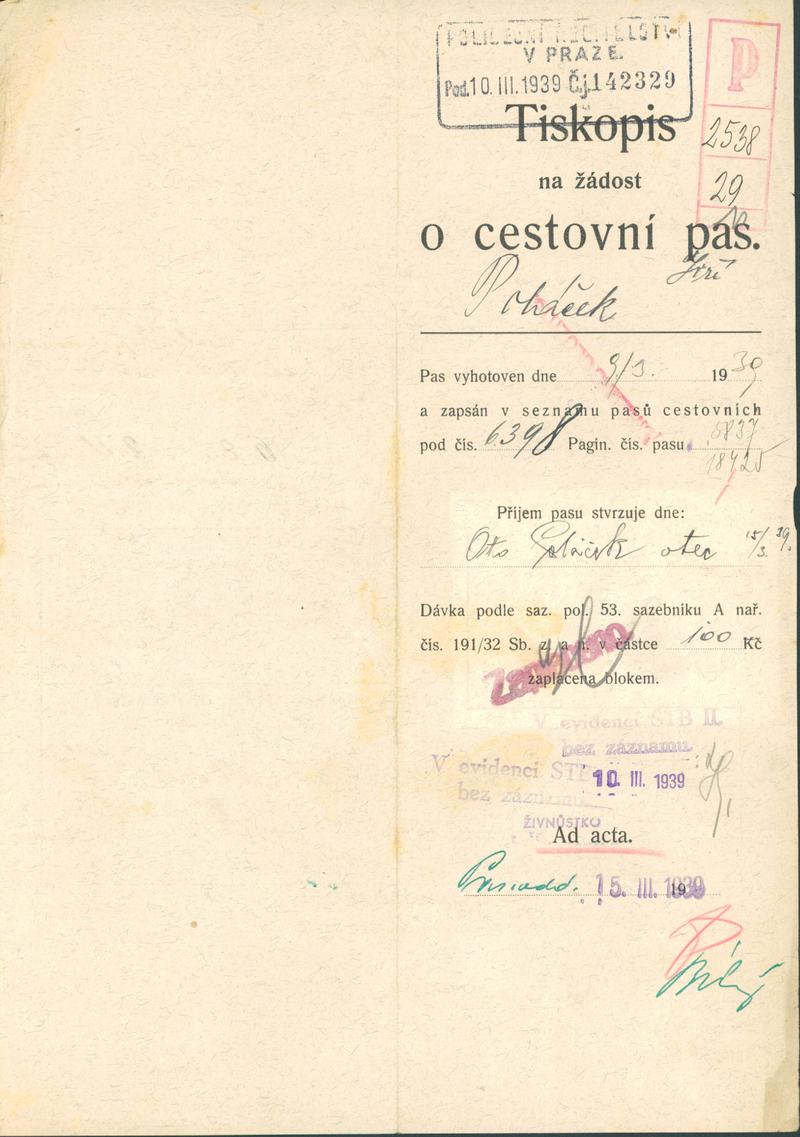 POLICEJNÍ ŘEDITELSTVÍ
V PRAZE.
Pod. 10. III. 1939 Č.j. 142329
P
2538
29
Tiskopis
na žádost
o cestovní pas.
Jiří
Poláček
Pas vyhotoven dne 9/3. 1939
a zapsán v seznamu pasů cestovních
pod čís. 6398 Pagin. čís. pasu
Příjem pasu stvrzuje dne:
Oto Poláček otec 15/3. 39.
Dávka podle saz. pol. 53. sazebníku A nař.
čís. 191/32 Sb. z. a n. v částce 100 Kč
Zaplaceno
zaplacena blokem.
V evidenci STB II.
bez záznamu
V evidenci STB
bez záznamu
10. III. 1939
Ad acta.
15. III. 1939